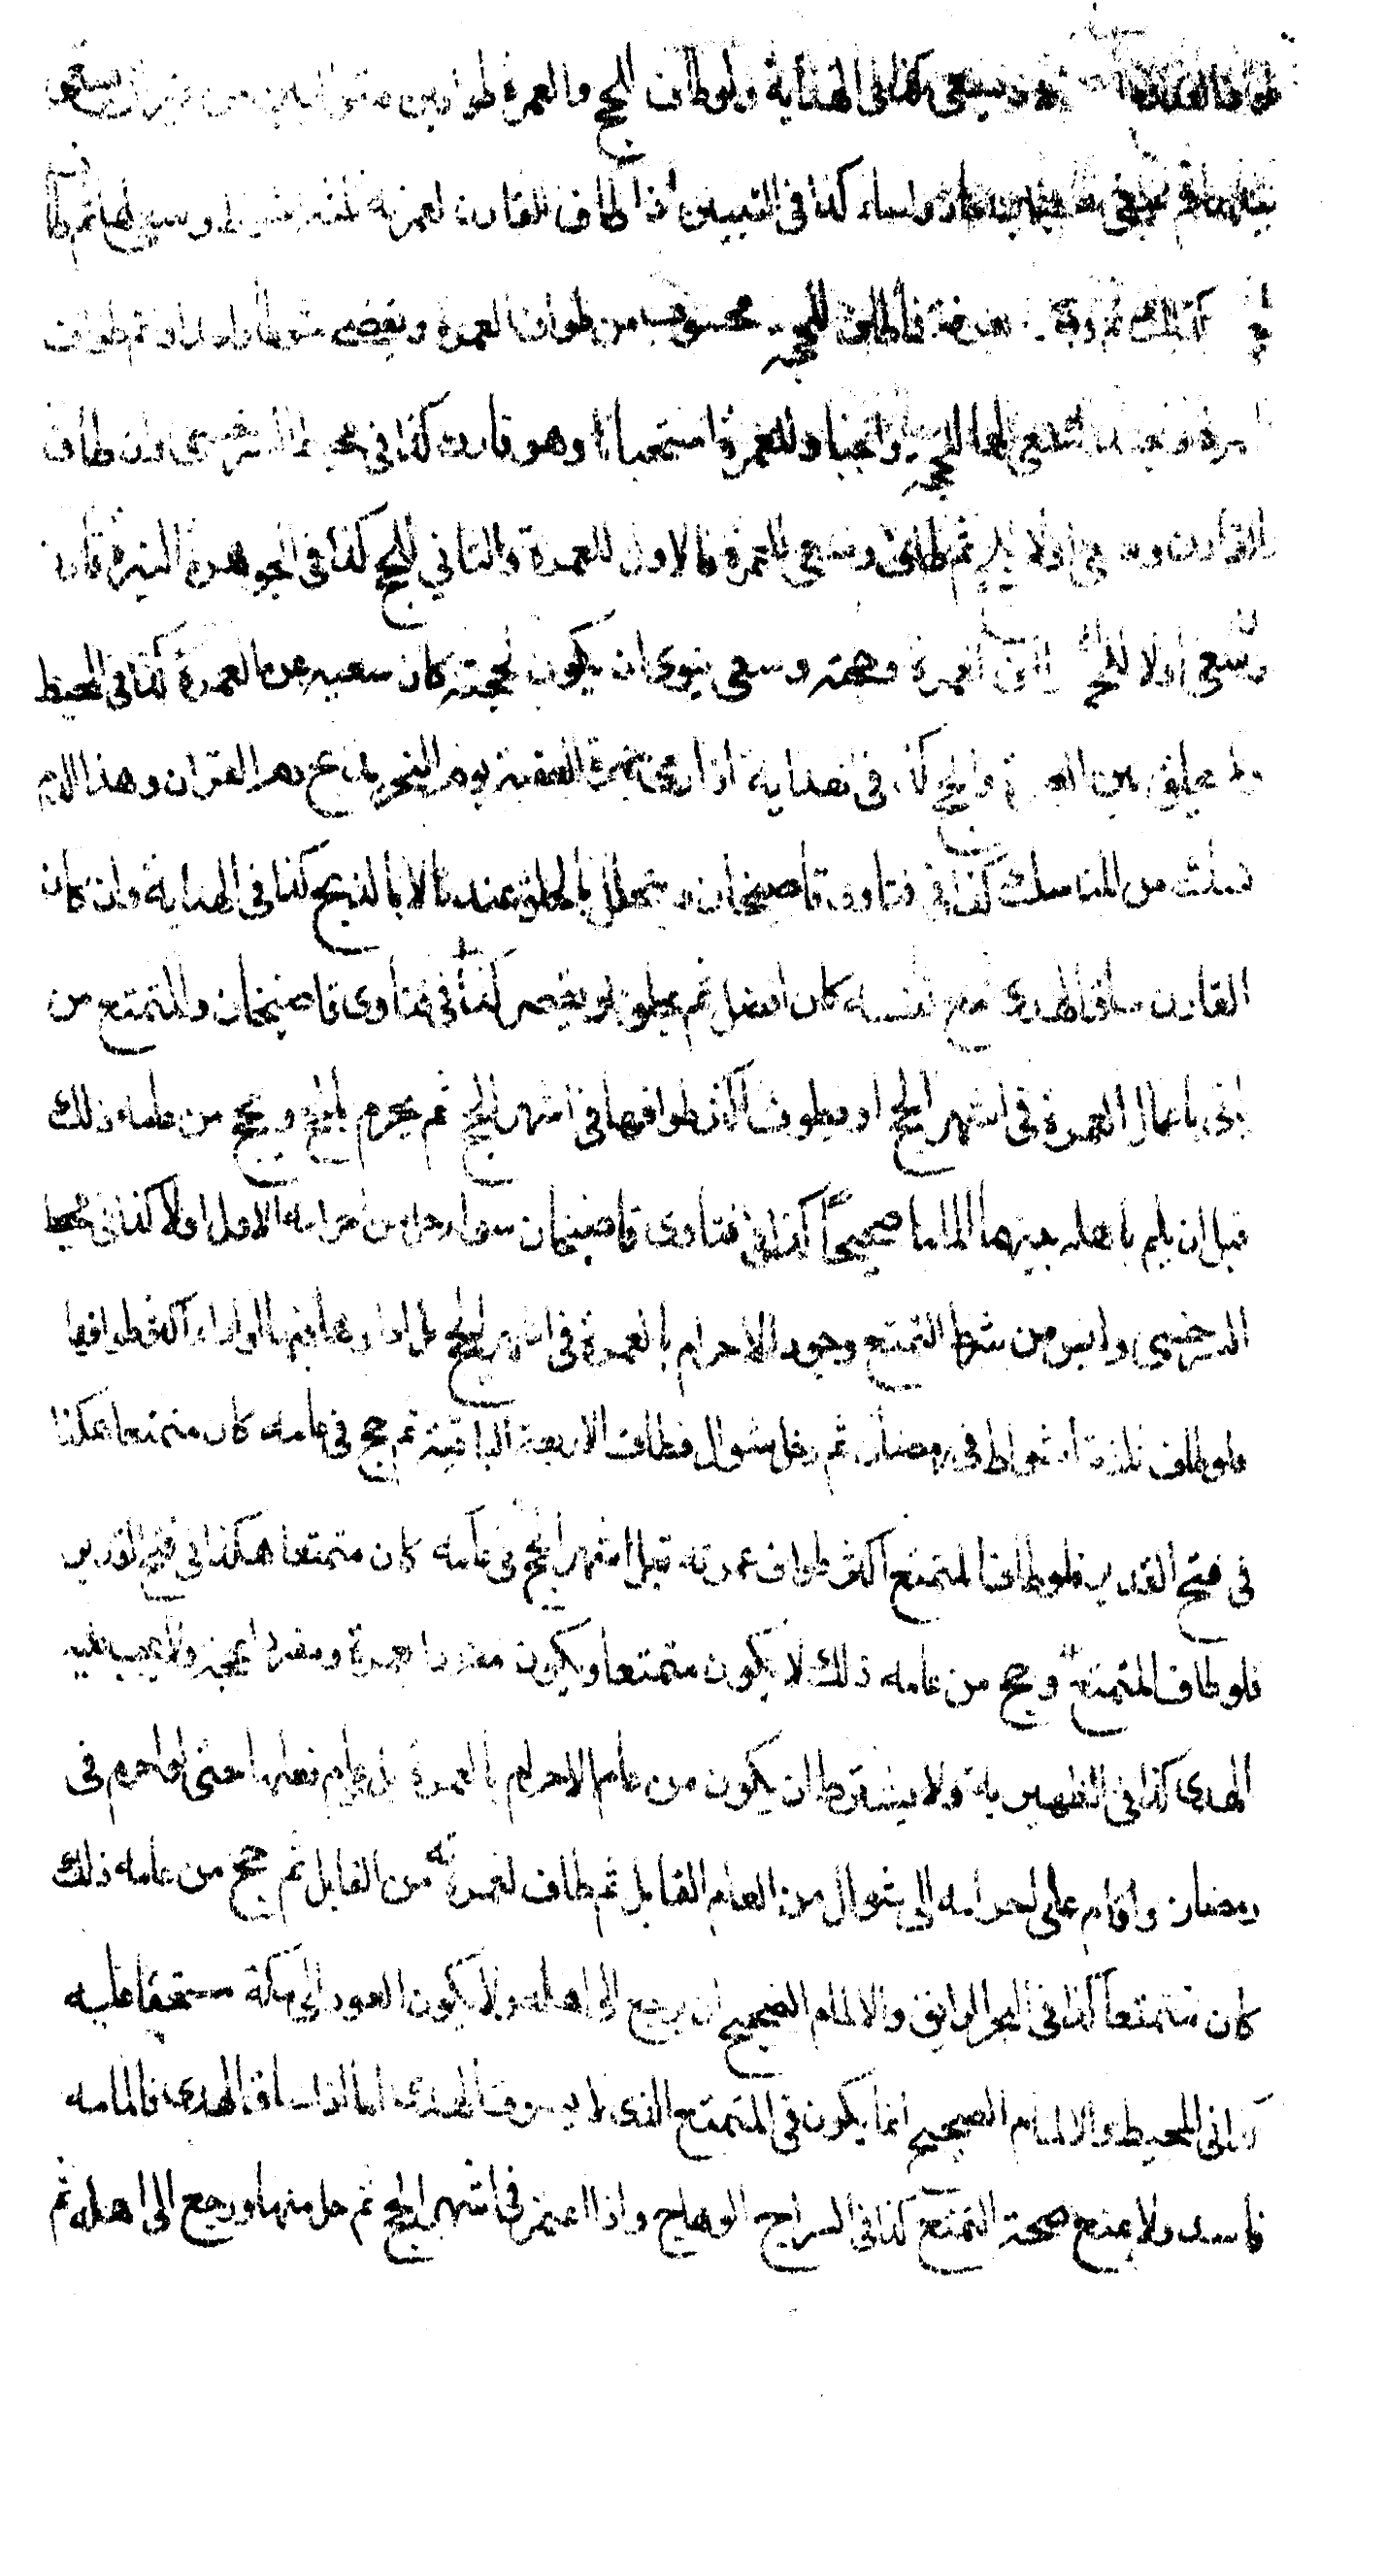 ويسعى كذا فى الهداية ولو طاف للحج والعمرة طوافين متواليين من غير ان يسعى
بينهما ثم سعى سعيين جاز واساء كذا فى التبيين اذا طاف القارن لعمرته ثلثة اشواط وسعى لها ثم طاف
لحجته كذلك ثم وقف بعرفة فما طاف للحجة محسوب من طواف العمرة ويقضى شوطا واحدا وتم طواف
العمرة ويعيد السعى لها للحجة واجبا وللعمرة استحبابا وهو قارن كذا فى محيط السرخسى وان طاف
القارن وسعى اولا للحج ثم طاف وسعى للعمرة فالاول للعمرة والثاني للحج كذا فى الجوهرة النيرة قارن
وسعى اولا للحج العمرة وحجته وسعى ينوى ان يكون لحجته كان سعيه عن العمرة كذا فى المحيط
ولا يحلق بين العمرة والحج كذا فى الهداية اذا رمى جمرة العقبة يوم النحر يذبح دم القران وهذا الدم
نسك من المناسك كذا فى فتاوى قاضيخان ويتحلل بالحلق عندنا لا بالذبح كذا فى الهداية وان كان
القارن ساق الهدى مع نفسه كان افضل ثم يحلق او يقصر كذا فى فتاوى قاضيخان والمتمتع من
ياتى باعمال العمرة فى اشهر الحج او يطوف اكثر طوافها فى اشهر الحج ثم يحرم بالحج ويحج من عامه ذلك
قبل ان يلم باهله بينهما الماما صحيحا كذا فى فتاوى قاضيخان سوا حل من احرامه الاول اولا كذا فى محيط
السرخسى وليس من شرط التمتع وجود الاحرام بالعمرة فى اشهر الحج بل اداوها فيها او اداء اكثر طوافها
فلو طاف ثلاثة اشواط فى رمضان ثم دخل شوال فطاف الاربعة الباقية ثم حج فى عامه كان متمتعا هكذا
فى فتح القدير فلو طاف المتمتع اكثر طواف عمرته قبل اشهر الحج فى عامه كان متمتعا هكذا فى فتح القدير
فلو طاف المتمتع وحج من عامه ذلك لا يكون متمتعا ويكون مفردا بعمرة ومفردا بحجة ولا يجب عليه
الهدى كذا فى الظهيرية ولا يشترط ان يكون من عام الاحرام بالعمرة بل عام فعلها حتى لو احرم فى
رمضان واقام على احرامه الى شوال من العام القابل ثم طاف لعمرته من القابل ثم حج من عامه ذلك
كان متمتعا كذا فى البحر الرايق والالمام الصحيح ان يرجع الى اهله ولا يكون العود الى مكة مستحقا عليه
كذا فى المحيط والالمام الصحيح انما يكون فى المتمتع الذى لم يسق الهدى اما اذا ساق الهدى فالمامه
فاسد ولا يمنع صحة التمتع كذا فى السراج الوهاج واذا اعتمر فى اشهر الحج ثم حل منها ورجع الى اهله ثم